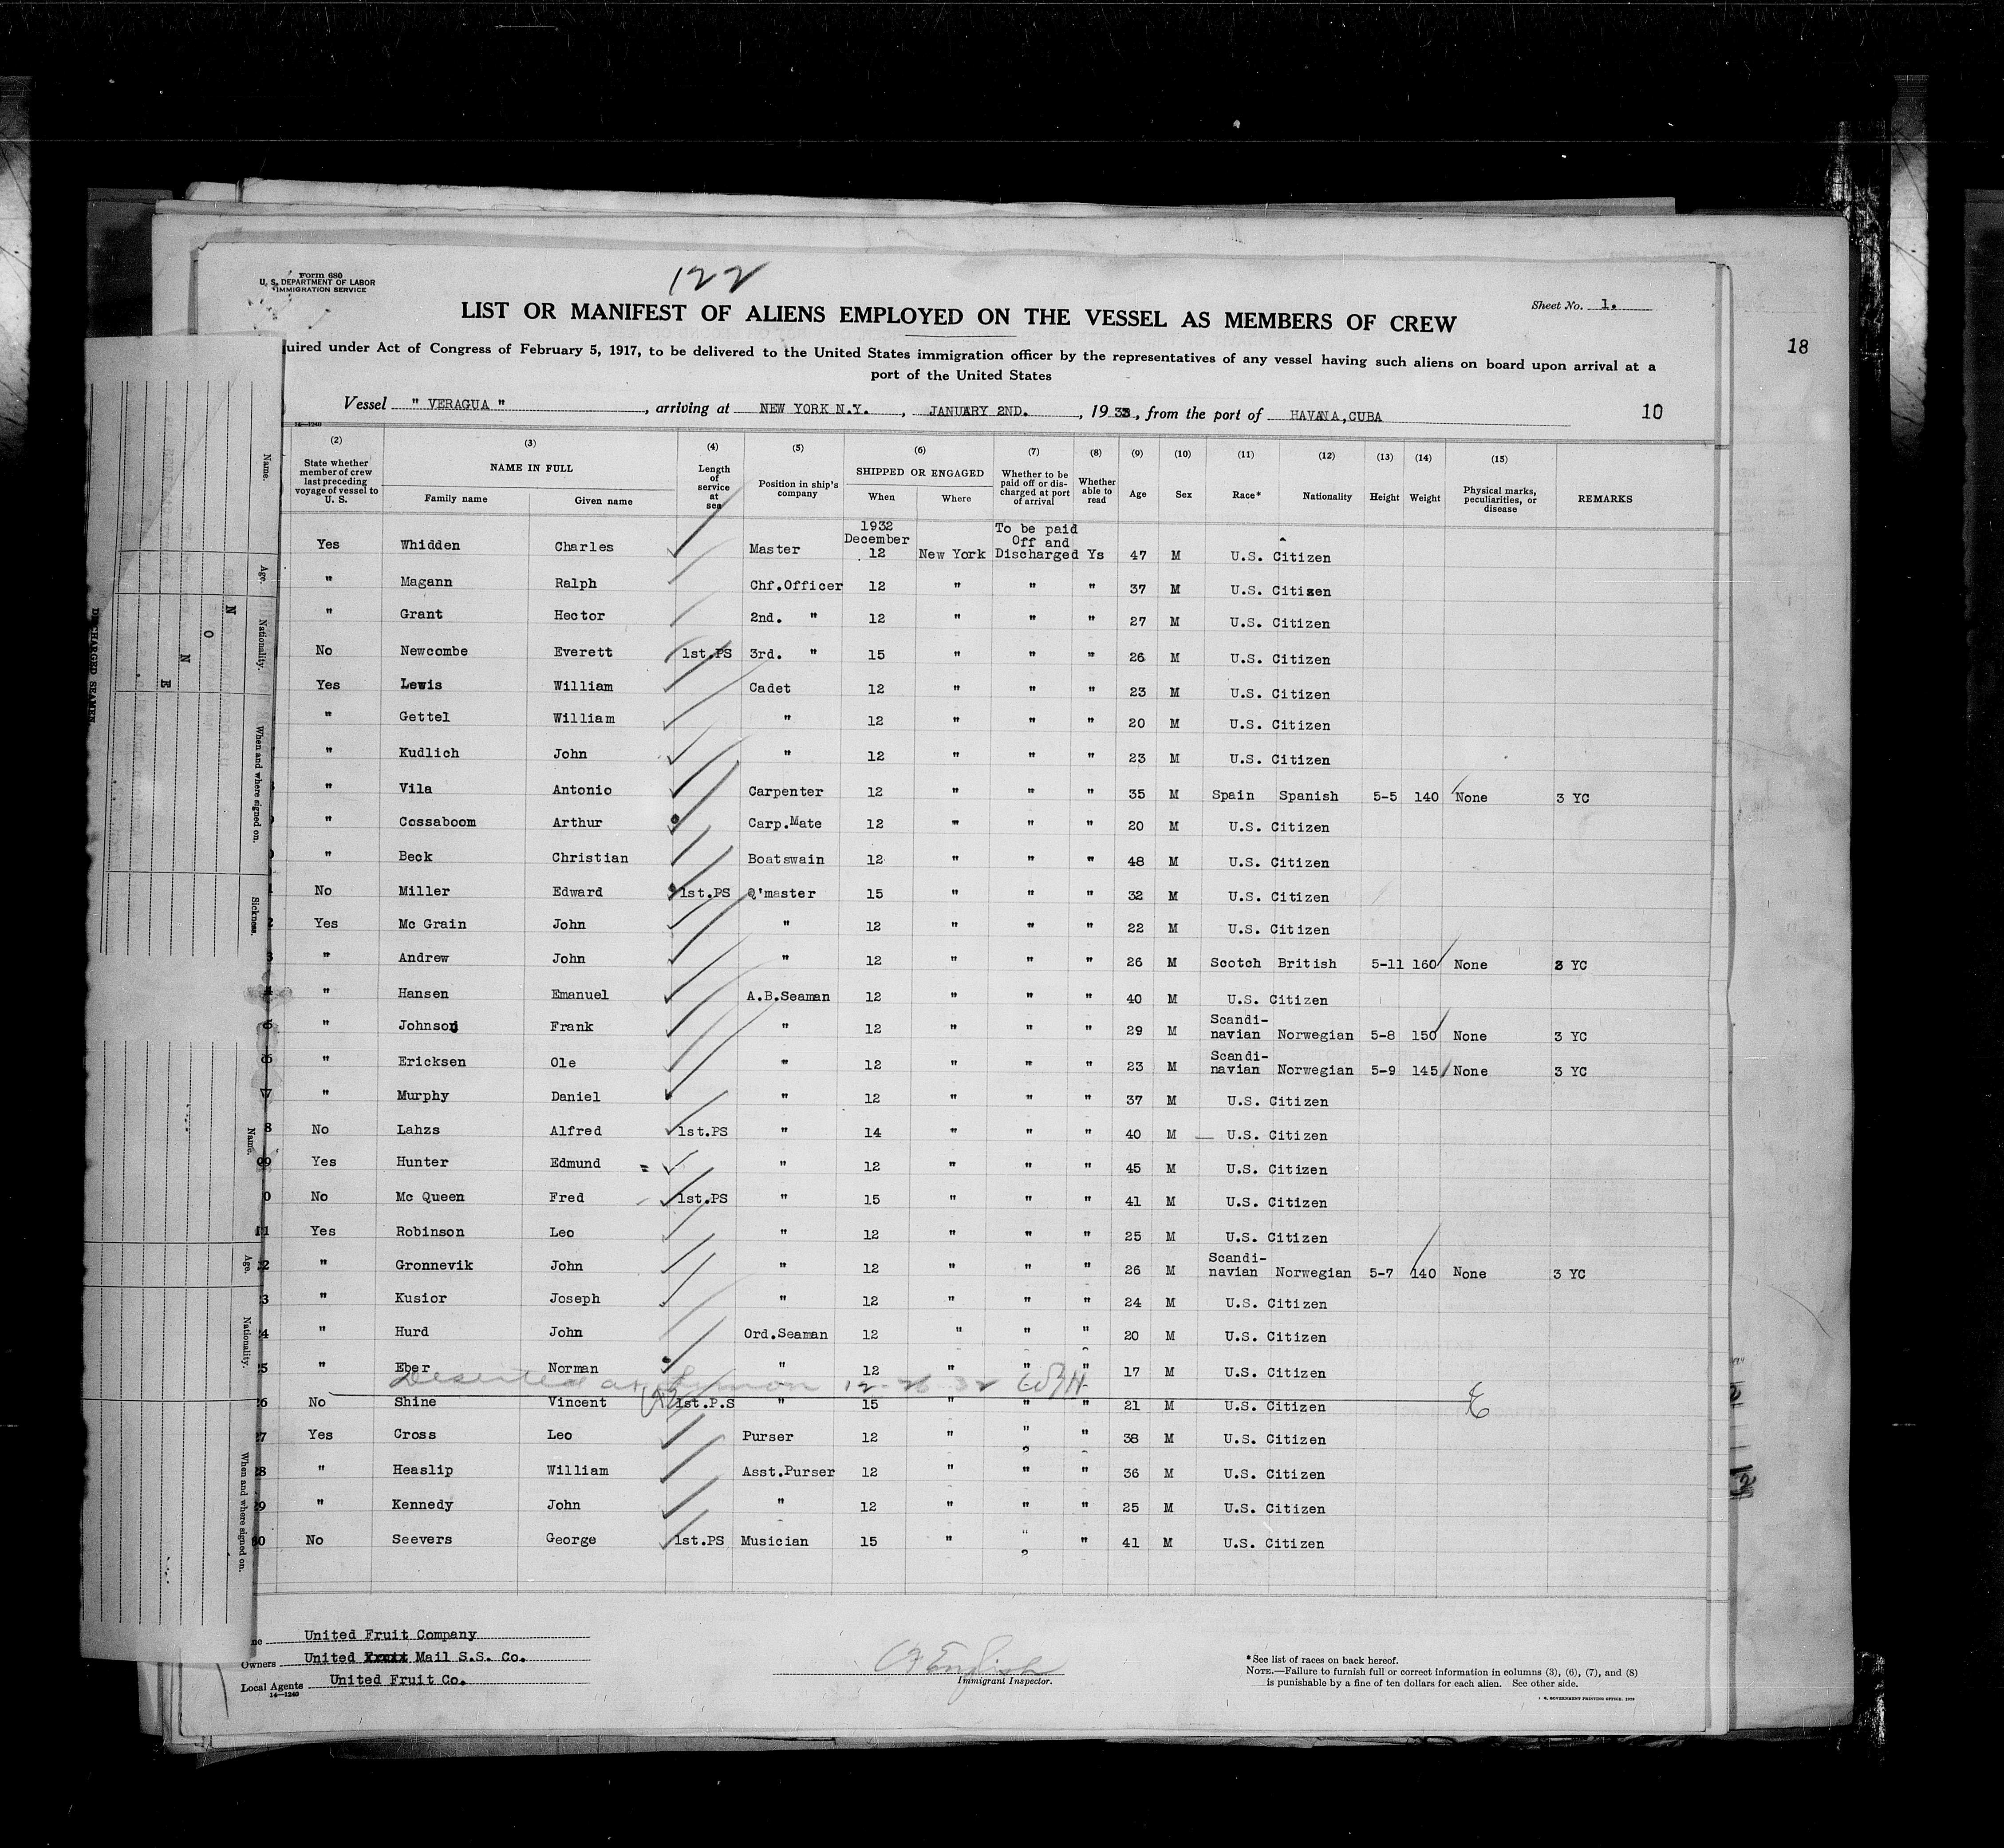 Form 680
U. S. DEPARTMENT OF LABOR
IMMIGRATION SERVICE
122
LIST OR MANIFEST OF ALIENS EMPLOYED ON THE VESSEL AS MEMBERS OF CREW
Sheet No. 1.
18
uired under Act of Congress of February 5, 1917, to be delivered to the United States immigration officer by the representatives of any vessel having such aliens on board upon arrival at a
port of the United States
Vessel " VERAGUA ", arriving at NEW YORK N.Y., JANUARY 2ND., 1933, from the port of HAVANA,CUBA
10
14—1240
(2) (3) (4) (5) (6) (7) (8) (9) (10) (11) (12) (13) (14) (15)
State whether member of crew last preceding voyage of vessel to U. S. NAME IN FULL Family name Given name Length of service at sea Position in ship's company SHIPPED OR ENGAGED When Where Whether to be paid off or discharged at port of arrival Whether able to read Age Sex Race* Nationality Height Weight Physical marks, peculiarities, or disease REMARKS
1932 To be paid
December Off and
Yes Whidden Charles Master 12 New York Discharged Ys 47 M U.S. Citizen
" Magann Ralph Chf.Officer 12 " " " 37 M U.S. Citizen
" Grant Hector 2nd. " 12 " " " 27 M U.S. Citizen
No Newcombe Everett 1st.PS 3rd. " 15 " " " 26 M U.S. Citizen
Yes Lewis William Cadet 12 " " " 23 M U.S. Citizen
" Gettel William " 12 " " " 20 M U.S. Citizen
" Kudlich John " 12 " " " 23 M U.S. Citizen
" Vila Antonio Carpenter 12 " " " 35 M Spain Spanish 5-5 140 None 3 YC
" Cossaboom Arthur Carp.Mate 12 " " " 20 M U.S. Citizen
" Beck Christian Boatswain 12 " " " 48 M U.S. Citizen
No Miller Edward 1st.PS Q'master 15 " " " 32 M U.S. Citizen
Yes Mc Grain John " 12 " " " 22 M U.S. Citizen
3 " Andrew John " 12 " " " 26 M Scotch British 5-11 160 None 3 YC
4 " Hansen Emanuel A.B.Seaman 12 " " " 40 M U.S. Citizen
" Johnson Frank " 12 " " " 29 M Scandi-navian Norwegian 5-8 150 None 3 YC
" Ericksen Ole " 12 " " " 23 M Scandi-navian Norwegian 5-9 145 None 3 YC
" Murphy Daniel " 12 " " " 37 M U.S. Citizen
8 No Lahzs Alfred 1st.PS " 14 " " " 40 M U.S. Citizen
Yes Hunter Edmund " 12 " " " 45 M U.S. Citizen
0 No Mc Queen Fred 1st.PS " 15 " " " 41 M U.S. Citizen
Yes Robinson Leo " 12 " " " 25 M U.S. Citizen
2 " Gronnevik John " 12 " " " 26 M Scandi-navian Norwegian 5-7 140 None 3 YC
3 " Kusior Joseph " 12 " " " 24 M U.S. Citizen
4 " Hurd John Ord.Seaman 12 " " " 20 M U.S. Citizen
5 " Eber Norman " 12 " " " 17 M U.S. Citizen
Deserted at 12-26-32
6 No Shine Vincent 1st.P.S " 15 " " " 21 M U.S. Citizen
7 Yes Cross Leo Purser 12 " " " 38 M U.S. Citizen
8 " Heaslip William Asst.Purser 12 " " " 36 M U.S. Citizen
9 " Kennedy John " 12 " " " 25 M U.S. Citizen
0 No Seevers George 1st.PS Musician 15 " " " 41 M U.S. Citizen
Name. Age. Nationality. When and where signed on. Sickness.
N O N E
DISCHARGED SEAMEN
Name. Age. Nationality. When and where signed on.
ne United Fruit Company
Owners United Mail S.S. Co.
Local Agents United Fruit Co.
14—1240
English
Immigrant Inspector.
*See list of races on back hereof.
NOTE.—Failure to furnish full or correct information in columns (3), (6), (7), and (8)
is punishable by a fine of ten dollars for each alien. See other side.
S. GOVERNMENT PRINTING OFFICE: 1929